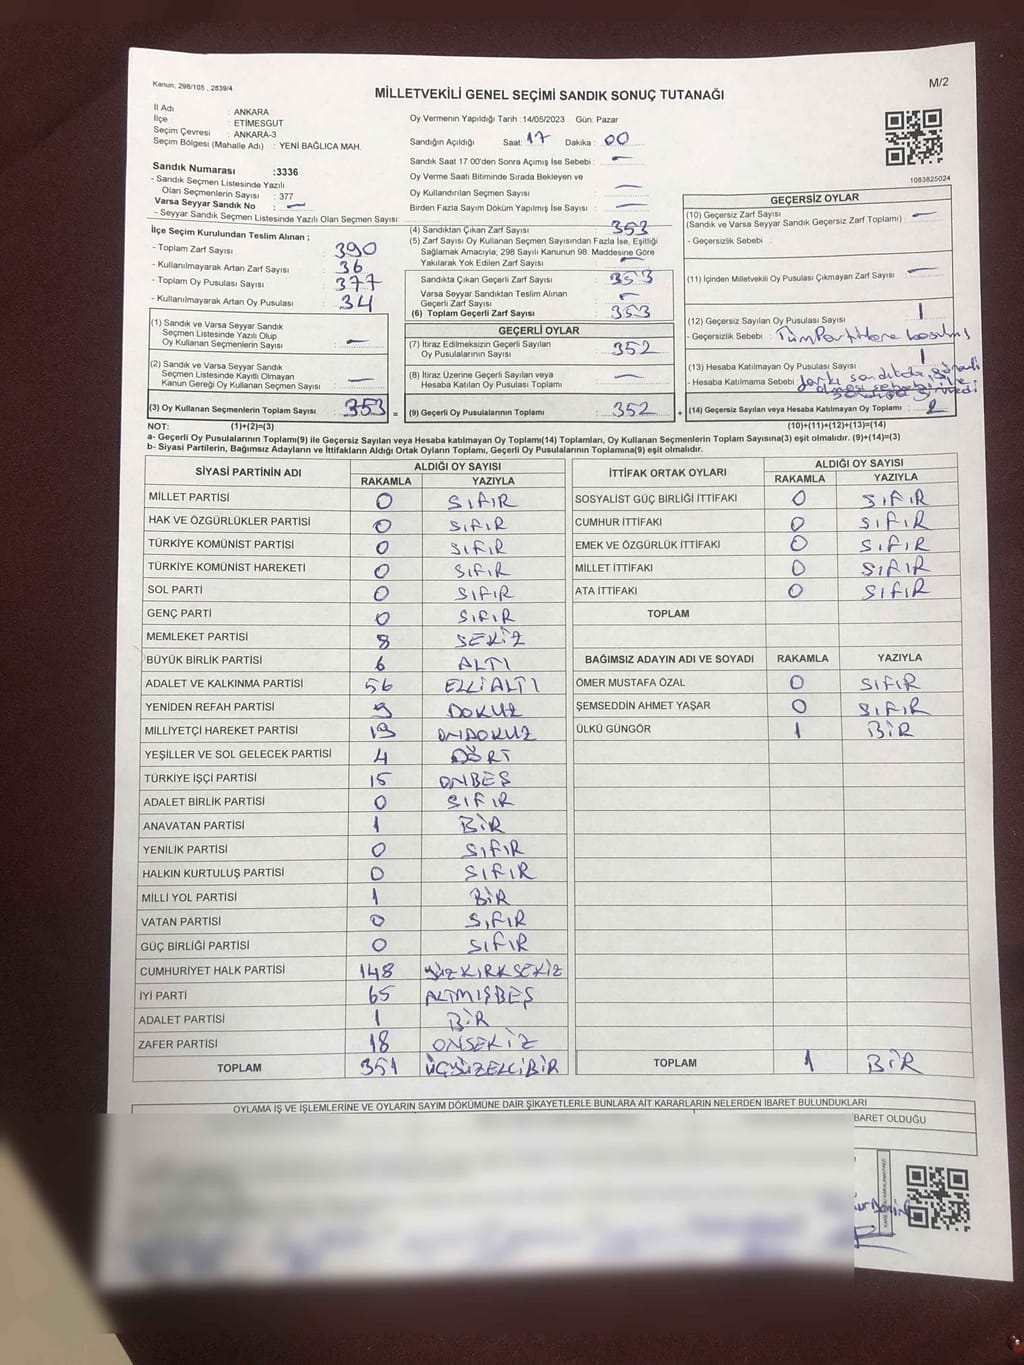 Kanun; 298/105 , 2839/4
M/2
MİLLETVEKİLİ GENEL SEÇİMİ SANDIK SONUÇ TUTANAĞI
İl Adı : ANKARA
İlçe : ETİMESGUT
Seçim Çevresi : ANKARA-3
Seçim Bölgesi (Mahalle Adı) : YENİ BAĞLICA MAH.
Sandık Numarası :3336
- Sandık Seçmen Listesinde Yazılı
Olan Seçmenlerin Sayısı : 377
Varsa Seyyar Sandık No : —
- Seyyar Sandık Seçmen Listesinde Yazılı Olan Seçmen Sayısı:
Oy Vermenin Yapıldığı Tarih :14/05/2023 Gün: Pazar
Sandığın Açıldığı Saat: 17 Dakika : 00
Sandık Saat 17:00'den Sonra Açımış İse Sebebi : —
Oy Verme Saati Bitiminde Sırada Bekleyen ve
Oy Kullandırılan Seçmen Sayısı : —
Birden Fazla Sayım Döküm Yapılmış İse Sayısı : —
1083825024
İlçe Seçim Kurulundan Teslim Alınan ;
- Toplam Zarf Sayısı : 390
- Kullanılmayarak Artan Zarf Sayısı : 36
- Toplam Oy Pusulası Sayısı : 377
- Kullanılmayarak Artan Oy Pusulası : 34
(1) Sandık ve Varsa Seyyar Sandık
Seçmen Listesinde Yazılı Olup
Oy Kullanan Seçmenlerin Sayısı : —
(2) Sandık ve Varsa Seyyar Sandık
Seçmen Listesinde Kayıtlı Olmayan
Kanun Gereği Oy Kullanan Seçmen Sayısı : —
(3) Oy Kullanan Seçmenlerin Toplam Sayısı : 353 =
(4) Sandıktan Çıkan Zarf Sayısı : 353
(5) Zarf Sayısı Oy Kullanan Seçmen Sayısından Fazla İse, Eşitliği
Sağlamak Amacıyla, 298 Sayılı Kanunun 98. Maddesine Göre
Yakılarak Yok Edilen Zarf Sayısı : —
Sandıkta Çıkan Geçerli Zarf Sayısı : 353
Varsa Seyyar Sandıktan Teslim Alınan
Geçerli Zarf Sayısı : —
(6) Toplam Geçerli Zarf Sayısı : 353
GEÇERLİ OYLAR
(7) İtiraz Edilmeksizin Geçerli Sayılan
Oy Pusulalarının Sayısı : 352
(8) İtiraz Üzerine Geçerli Sayılan veya
Hesaba Katılan Oy Pusulası Toplamı : —
(9) Geçerli Oy Pusulalarının Toplamı : 352 +
GEÇERSİZ OYLAR
(10) Geçersiz Zarf Sayısı : —
(Sandık ve Varsa Seyyar Sandık Geçersiz Zarf Toplamı)
- Geçersizlik Sebebi :
(11) İçinden Milletvekili Oy Pusulası Çıkmayan Zarf Sayısı : —
(12) Geçersiz Sayılan Oy Pusulası Sayısı : 1
- Geçersizlik Sebebi : Tüm Partilere basılmış
(13) Hesaba Katılmayan Oy Pusulası Sayısı : 1
- Hesaba Katılmama Sebebi : farklı sandıkda
olması sebebi ile
(14) Geçersiz Sayılan veya Hesaba Katılmayan Oy Toplamı : 2
NOT: (1)+(2)=(3)
(10)+(11)+(12)+(13)=(14)
a- Geçerli Oy Pusulalarının Toplamı(9) ile Geçersiz Sayılan veya Hesaba katılmayan Oy Toplamı(14) Toplamları, Oy Kullanan Seçmenlerin Toplam Sayısına(3) eşit olmalıdır. (9)+(14)=(3)
b- Siyasi Partilerin, Bağımsız Adayların ve İttifakların Aldığı Ortak Oyların Toplamı, Geçerli Oy Pusulalarının Toplamına(9) eşit olmalıdır.
SİYASİ PARTİNİN ADI ALDIĞI OY SAYISI
RAKAMLA YAZIYLA
MİLLET PARTİSİ 0 SIFIR
HAK VE ÖZGÜRLÜKLER PARTİSİ 0 SIFIR
TÜRKİYE KOMÜNİST PARTİSİ 0 SIFIR
TÜRKİYE KOMÜNİST HAREKETİ 0 SIFIR
SOL PARTİ 0 SIFIR
GENÇ PARTİ 0 SIFIR
MEMLEKET PARTİSİ 8 SEKİZ
BÜYÜK BİRLİK PARTİSİ 6 ALTI
ADALET VE KALKINMA PARTİSİ 56 ELLİALTI
YENİDEN REFAH PARTİSİ 9 DOKUZ
MİLLİYETÇİ HAREKET PARTİSİ 19 ONDOKUZ
YEŞİLLER VE SOL GELECEK PARTİSİ 4 DÖRT
TÜRKİYE İŞÇİ PARTİSİ 15 ONBEŞ
ADALET BİRLİK PARTİSİ 0 SIFIR
ANAVATAN PARTİSİ 1 BİR
YENİLİK PARTİSİ 0 SIFIR
HALKIN KURTULUŞ PARTİSİ 0 SIFIR
MİLLİ YOL PARTİSİ 1 BİR
VATAN PARTİSİ 0 SIFIR
GÜÇ BİRLİĞİ PARTİSİ 0 SIFIR
CUMHURİYET HALK PARTİSİ 148 YÜZKIRKSEKİZ
İYİ PARTİ 65 ALTMIŞBEŞ
ADALET PARTİSİ 1 BİR
ZAFER PARTİSİ 18 ONSEKİZ
TOPLAM 351 ÜÇYÜZELLİBİR
İTTİFAK ORTAK OYLARI ALDIĞI OY SAYISI
RAKAMLA YAZIYLA
SOSYALİST GÜÇ BİRLİĞİ İTTİFAKI 0 SIFIR
CUMHUR İTTİFAKI 0 SIFIR
EMEK VE ÖZGÜRLÜK İTTİFAKI 0 SIFIR
MİLLET İTTİFAKI 0 SIFIR
ATA İTTİFAKI 0 SIFIR
TOPLAM
BAĞIMSIZ ADAYIN ADI VE SOYADI RAKAMLA YAZIYLA
ÖMER MUSTAFA ÖZAL 0 SIFIR
ŞEMSEDDİN AHMET YAŞAR 0 SIFIR
ÜLKÜ GÜNGÖR 1 BİR
TOPLAM 1 BİR
OYLAMA İŞ VE İŞLEMLERİNE VE OYLARIN SAYIM DÖKÜMÜNE DAİR ŞİKAYETLERLE BUNLARA AİT KARARLARIN NELERDEN İBARET BULUNDUKLARI
BARET OLDUĞU